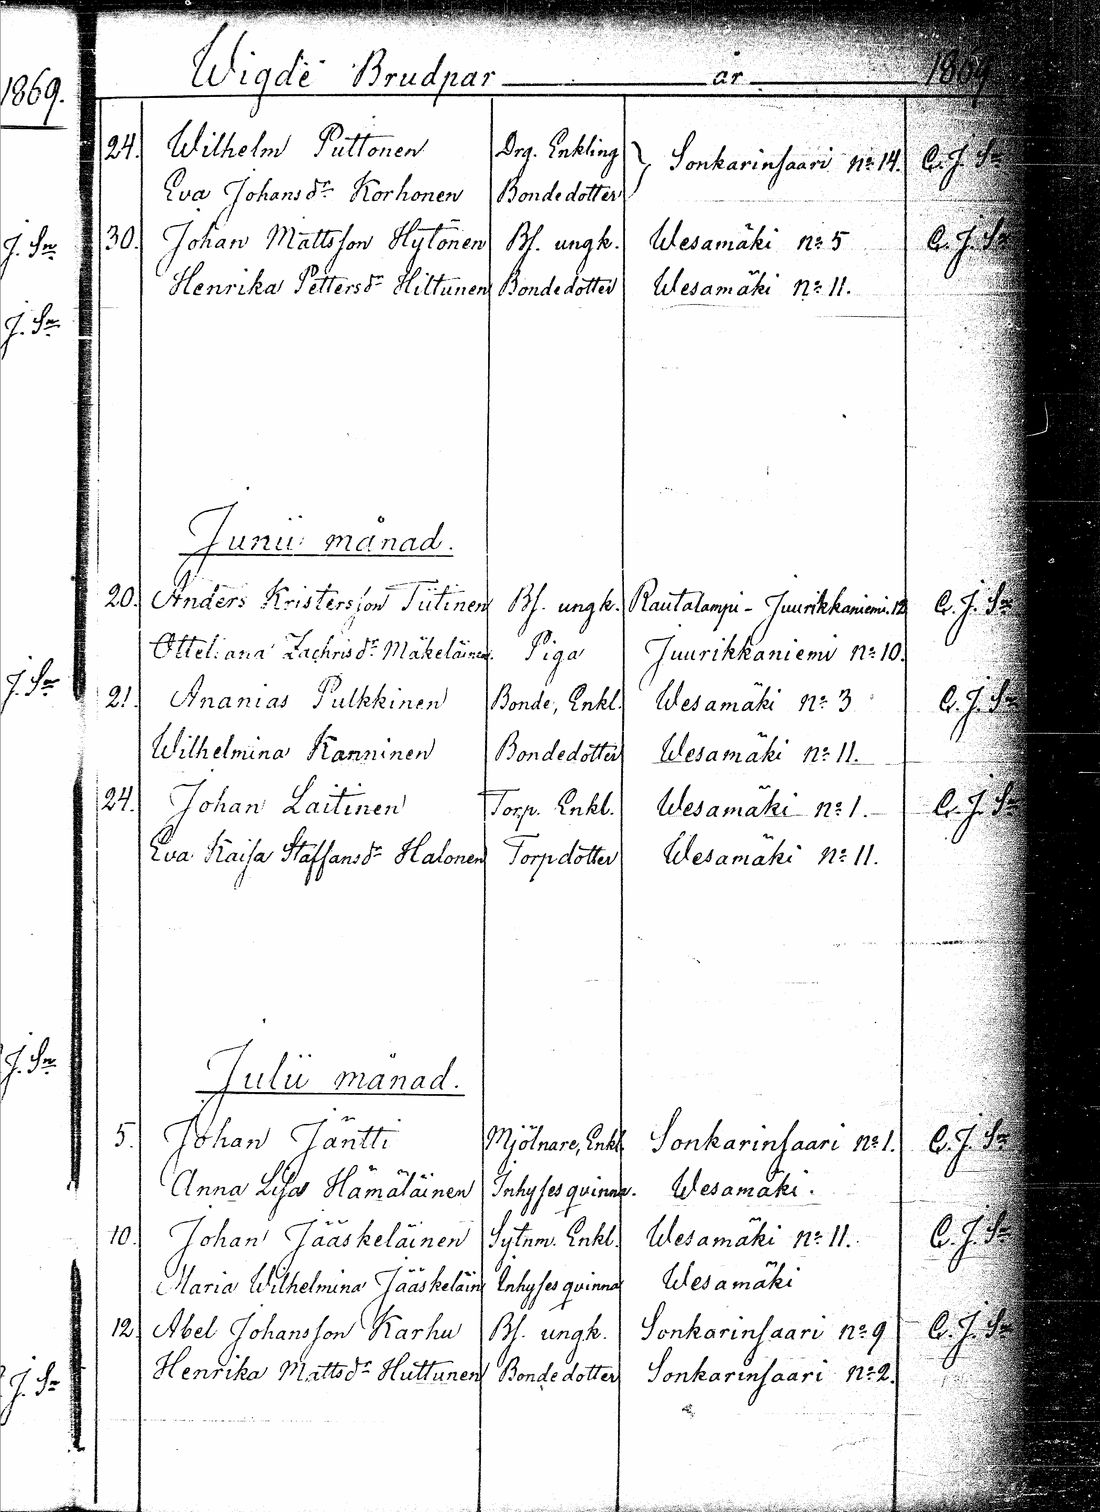 1869.
Wigde Brudpar år 1869
24. Wilhelm Puttonen Drg. Enkling } Sonkarinsaari No 14. C. J. Sn
Eva Johansdr Korhonen Bondedotter
J. Sn
30. Johan Mattsson Hytönen Bs. ungk. Wesamäki No 5 C. J. Sn
Henrika Pettersdr Hiltunen Bondedotter Wesamäki No 11.
J. Sn
Junii månad.
20. Anders Kristersson Tiitinen Bs. ungk. Rautalampi - Juurikkaniemi. 12 C. J. Sn
Otteliana Zachrisdr Mäkeläinen. Piga Juurikkaniemi No 10.
J. Sn
21. Ananias Pulkkinen Bonde, Enkl. Wesamäki No 3 C. J. Sn
Wilhelmina Kanninen Bondedotter Wesamäki No 11.
24. Johan Laitinen Torp. Enkl. Wesamäki No 1. C. J. Sn
Eva Kaisa Staffansdr Halonen Torpdotter Wesamäki No 11.
J. Sn
Julii månad.
5. Johan Jäntti Mjölnare, Enkl. Sonkarinsaari No 1. C. J. Sn
Anna Lisa Hämäläinen Inhysesqvinna. Wesamäki.
10. Johan Jääskeläinen Sytnm. Enkl. Wesamäki No 11. C. J. Sn
Maria Wilhelmina Jääskeläin Inhysesqvinna Wesamäki
12 Abel Johansson Karhu Bs. ungk. Sonkarinsaari No 9 C. J. Sn
Henrika Mattsdr Huttunen Bondedotter Sonkarinsaari No 2.
J. Sn